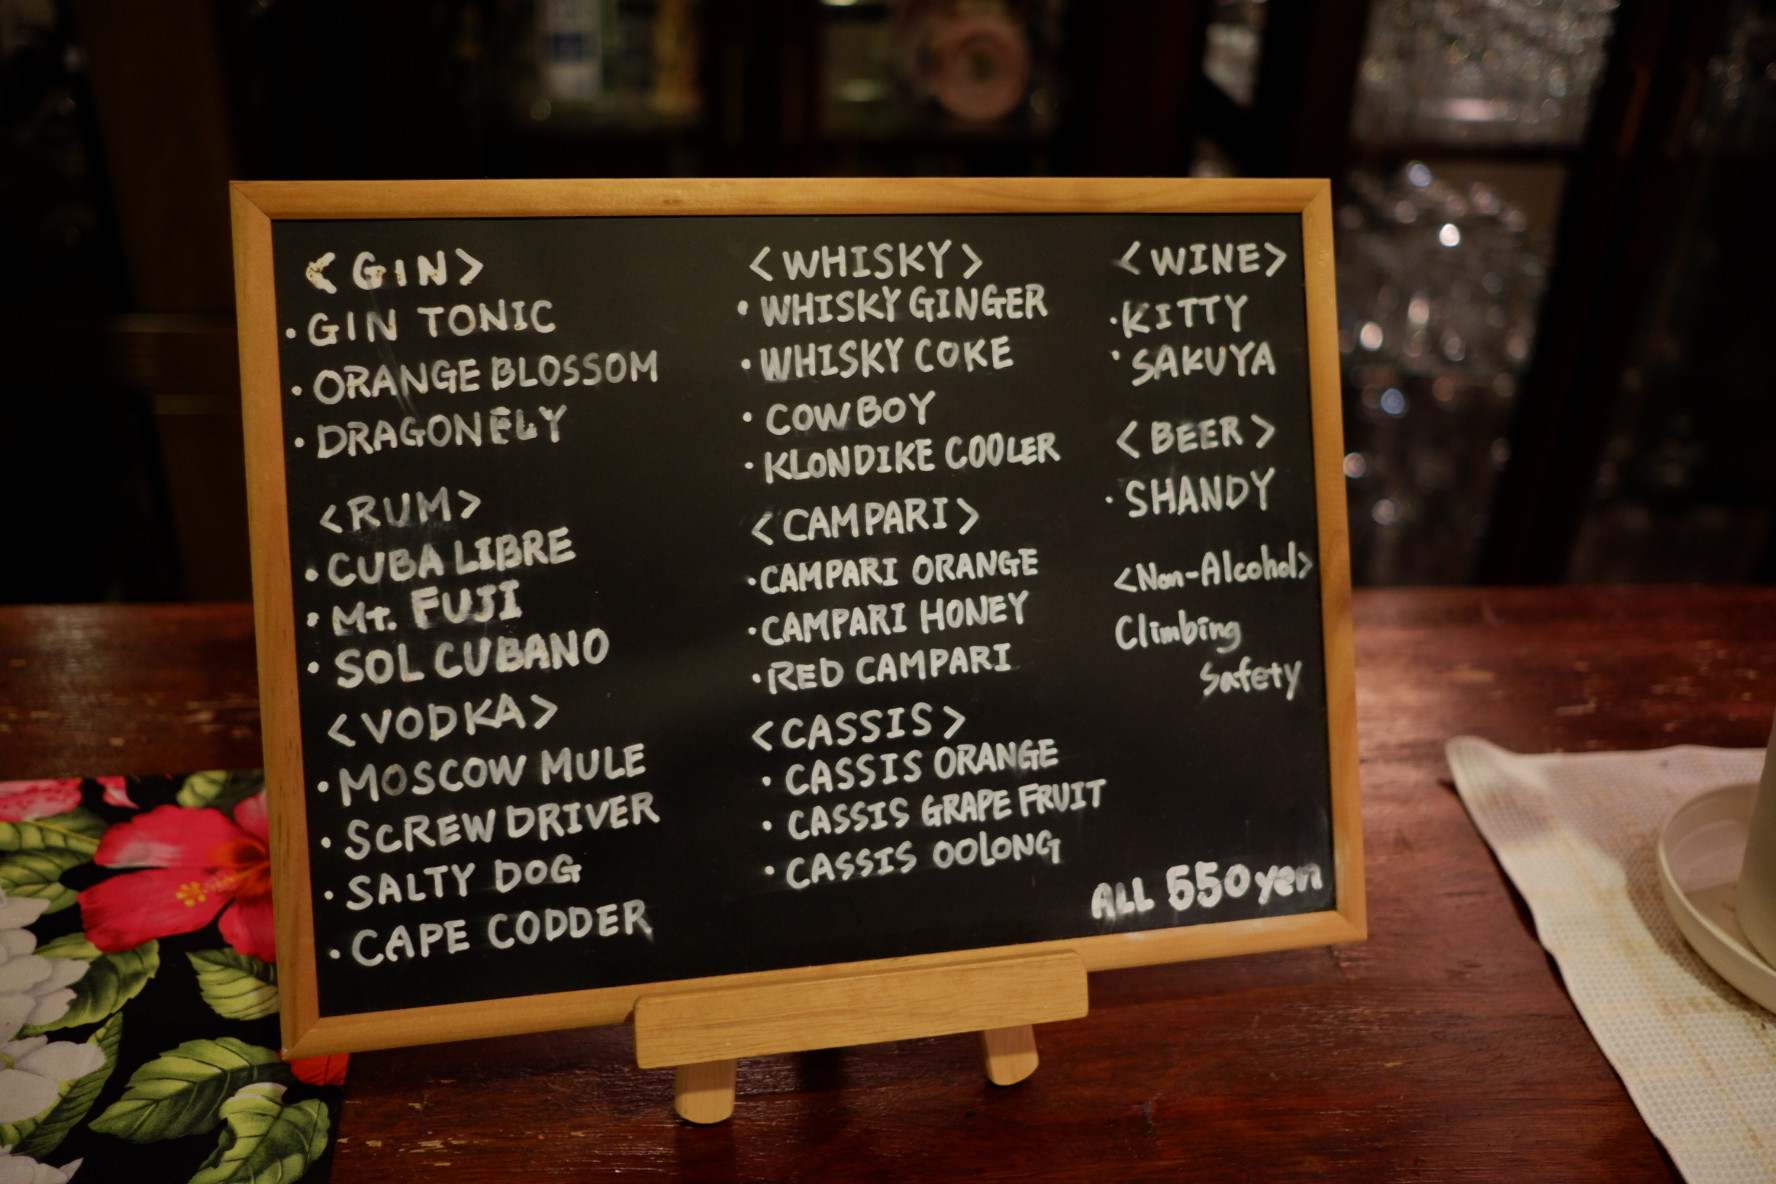 <GIN>
・GIN TONIC
・ORANGE BLOSSOM
・DRAGONFLY
<RUM>
・CUBA LIBRE
・Mt. FUJI
・SOL CUBANO
<VODKA>
・MOSCOW MULE
・SCREWDRIVER
・SALTY DOG
・CAPE CODDER
<WHISKY>
・WHISKY GINGER
・WHISKY COKE
・COWBOY
・KLONDIKE COOLER
<CAMPARI>
・CAMPARI ORANGE
・CAMPARI HONEY
・RED CAMPARI
<CASSIS>
・CASSIS ORANGE
・CASSIS GRAPE FRUIT
・CASSIS OOLONG
<WINE>
・KITTY
・SAKUYA
<BEER>
・SHANDY
<Non-Alcohol>
Climbing
Safety
ALL 550yen